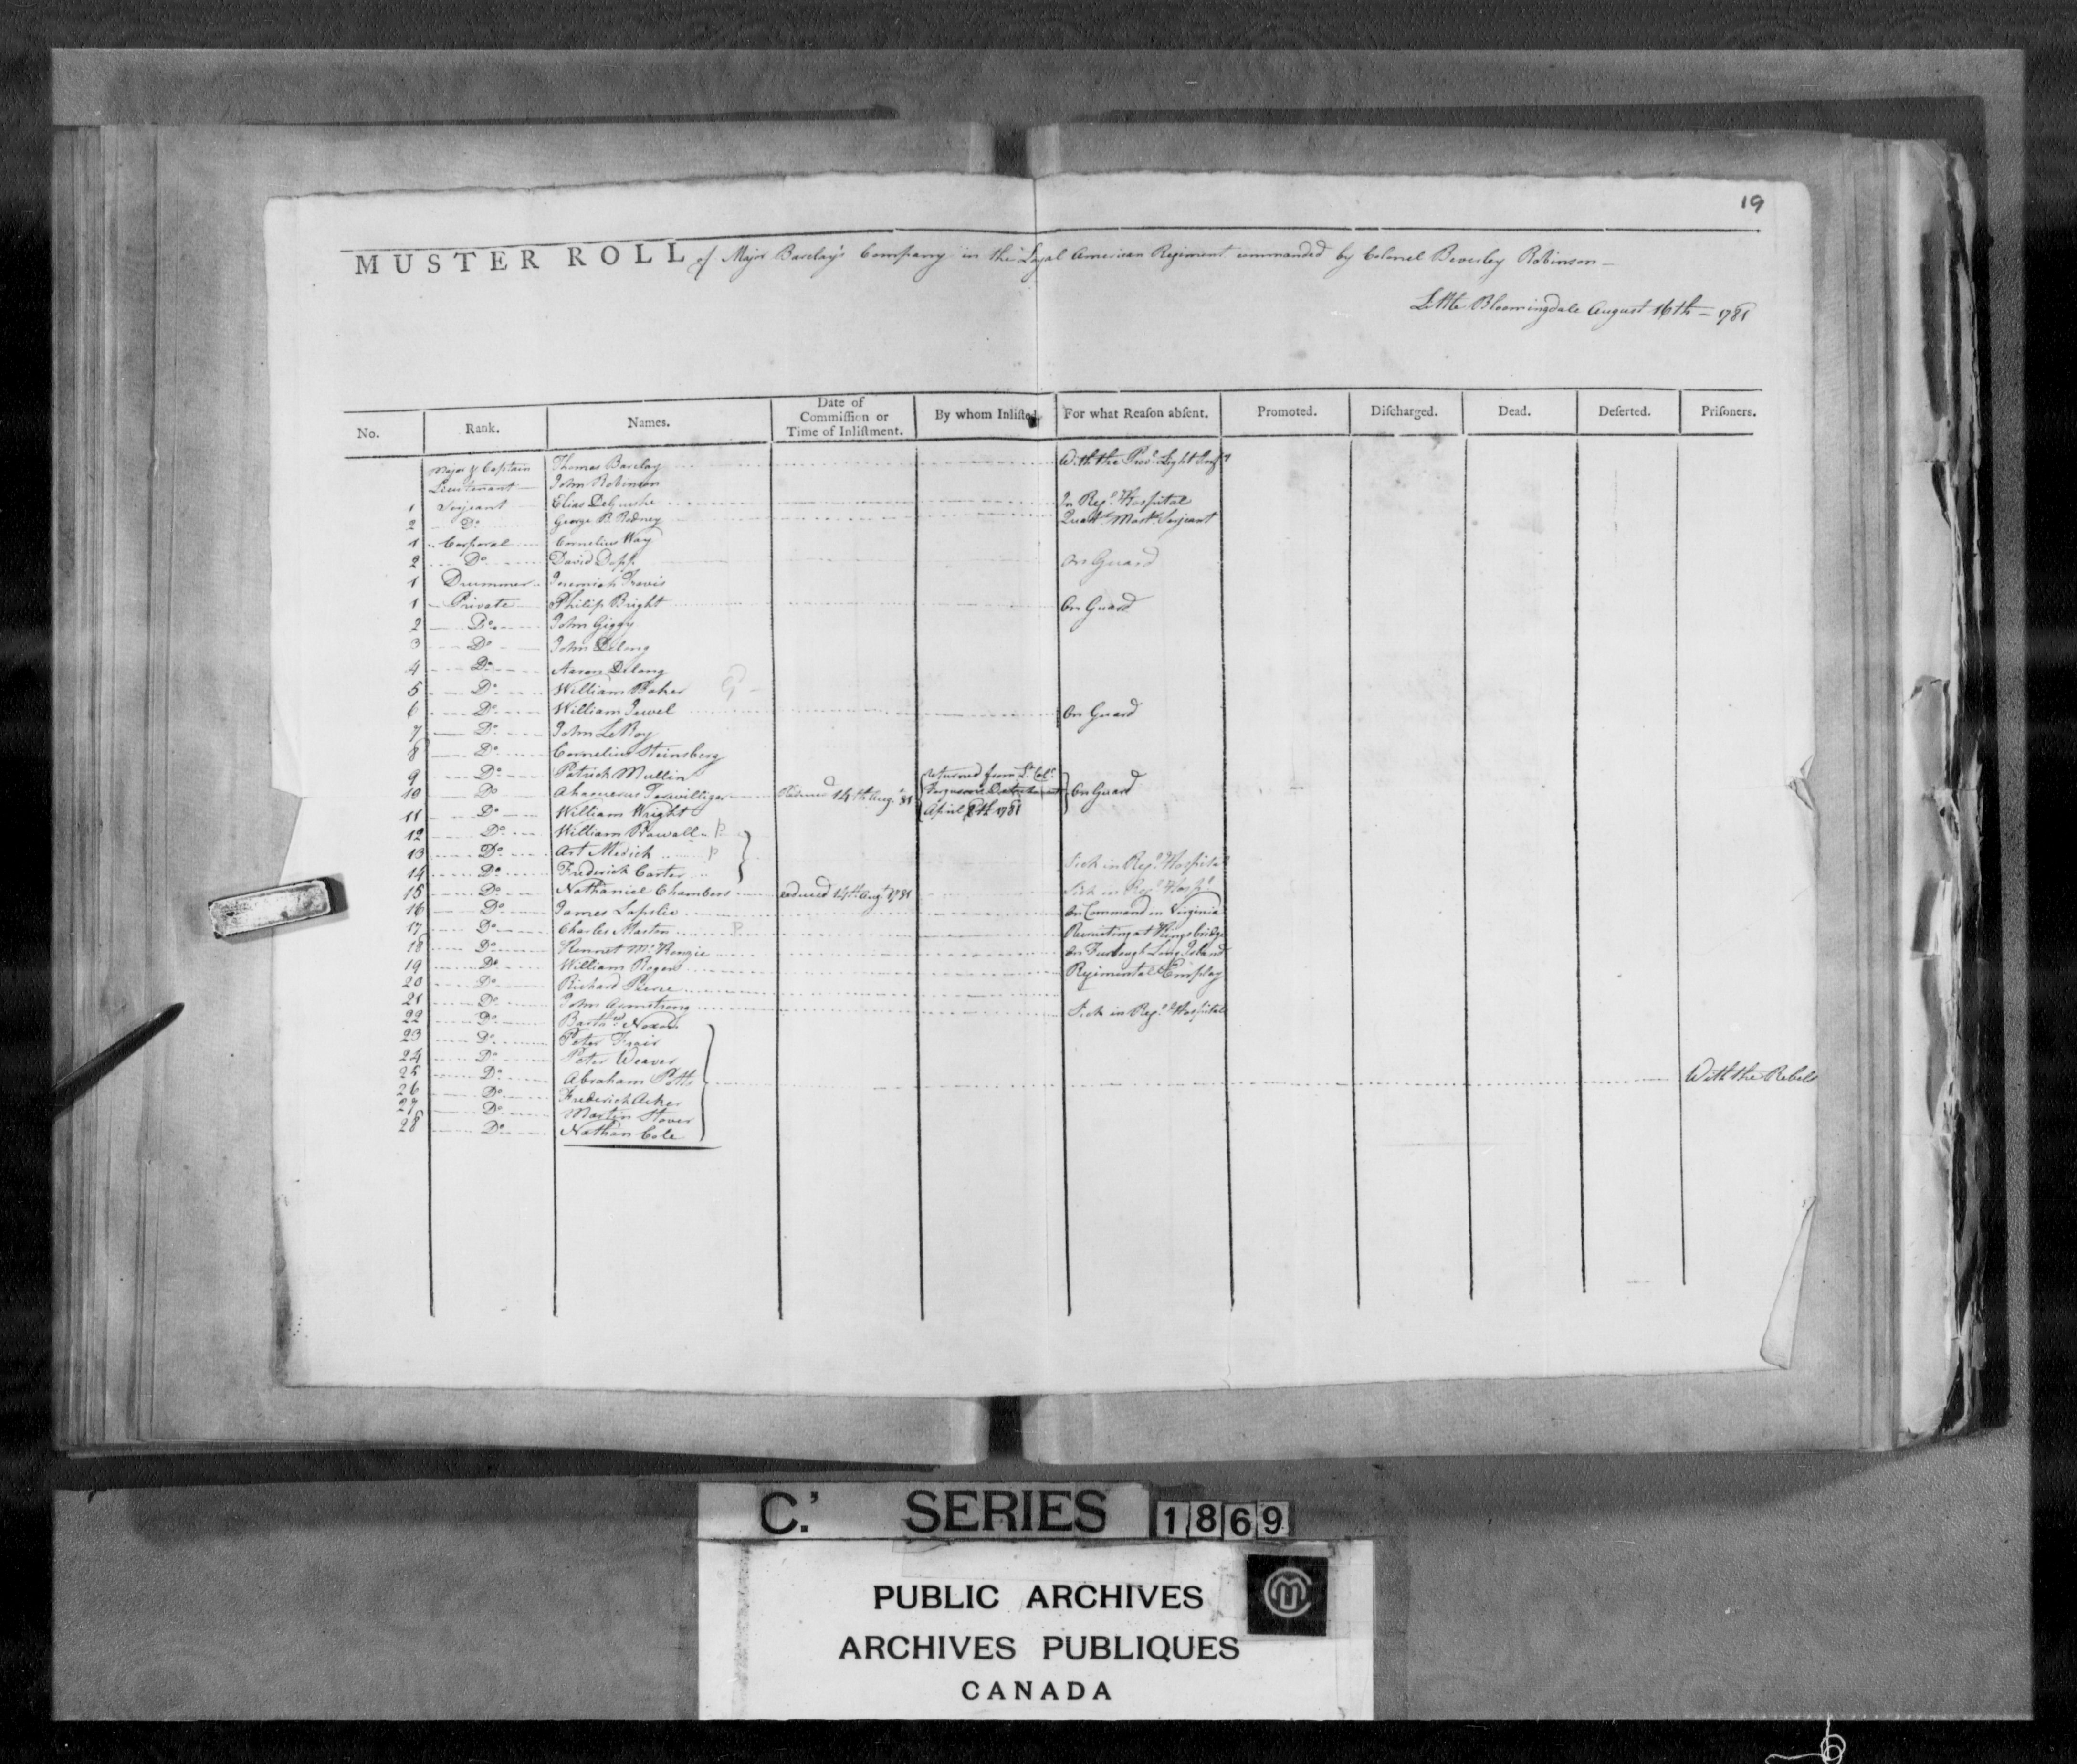 19
MUSTER ROLL of Major Barclay's Company in the Loyal American Regiment commanded by Colonel Beverley Robinson
Little Bloomingdale August 16th 1781
No. Rank. Names. Date of Commiſſion or Time of Inliſtment. By whom Inliſted. For what Reaſon abſent. Promoted. Diſcharged. Dead. Deſerted. Priſoners.
Major & Captain Thomas Barclay With the Provl. Light Inf
Lieutenant John Robinson
1 Serjeant Elias In Regl. Hospital
2 Do George B. Rodney Quartr. Mastr. Serjeant
1 Corporal Cornelius Way
2 Do David On Guard
1 Drummer Jeremiah Travis
1 Private Philip Bright On Guard
2 Do John Giggy
3 Do John Delong
4 Do Aaron Delong
5 Do William Baker
6 Do William Jewel On Guard
7 Do John LeRoy
8 Do Cornelius Steinsberg
9 Do Patrick Mullin
10 Do Ahasuerus Terwilliger 14th Augt. 81 returned from Lt. Colo. Fergusons Detachment April 1781 On Guard
11 Do William Wright
12 Do William P
13 Do Art Medich P
14 Do Frederick Carter Sick in Regl. Hospital
15 Do Nathaniel Chambers 14th Augt 1781 Sick in Regl. Hospl
16 Do James Lapslie On Command in Virginia
17 Do Charles Maston P Recruiting at Kingsbridge
18 Do Kennet McKenzie On Furlough Long Island
19 Do William Rogers Regimental Employ
20 Do Richard Pierce
21 Do John Armstrong Sick in Regl. Hospital
22 Do Barthw. Noxon
23 Do Peter Frair
24 Do Peter Weaver
25 Do Abraham Potts With the Rebels
26 Do Frederick Acker
27 Do Martin Stover
28 Do Nathan Cole
C.' SERIES 1869
PUBLIC ARCHIVES
ARCHIVES PUBLIQUES
CANADA